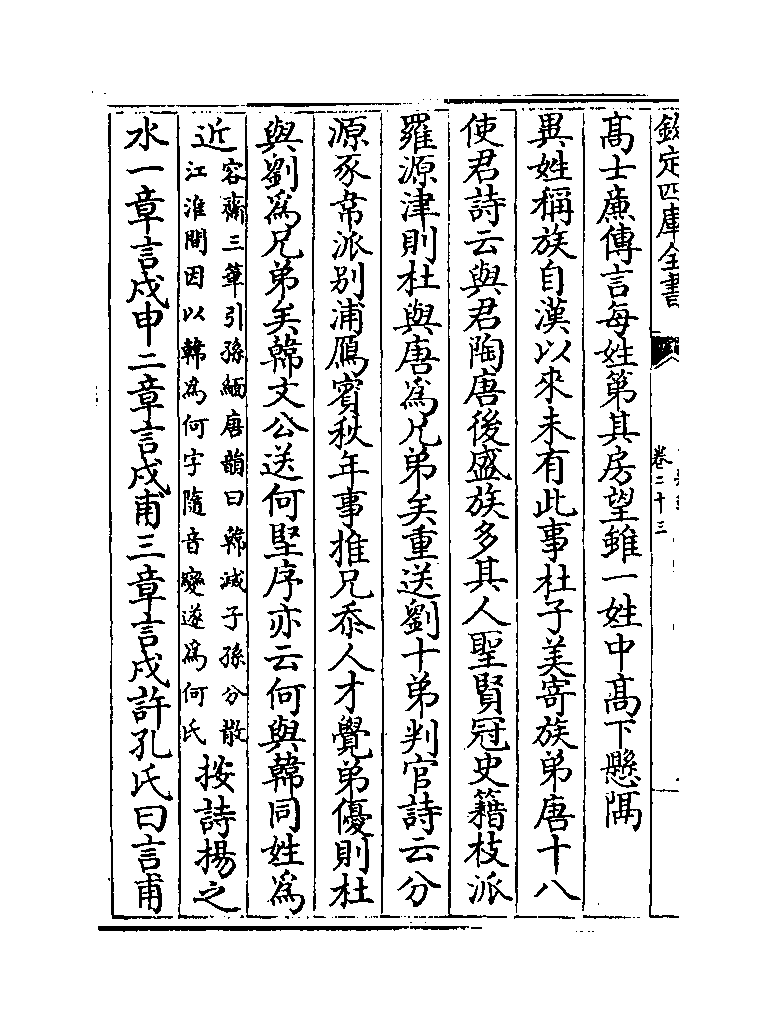 欽定四庫全書
卷二十三
高士廉傳言每姓第其房望雖一姓中高下懸隔
異姓稱族自漢以來未有此事杜子美寄族弟唐十八
使君詩云與君陶唐後盛族多其人聖賢冠史籍枝派
羅源津則杜與唐爲兄弟矣重送劉十弟判官詩云分
源豕韋派别浦鴈賓秋年事推兄忝人才覺弟優則杜
與劉爲兄弟矣韓文公送何堅序亦云何與韓同姓爲
近容齋三筆引孫緬唐韻曰韓滅子孫分散江淮間因以韓爲何字隨音變遂爲何氏按詩揚之
水一章言戍申二章言戍甫三章言戍許孔氏曰言甫